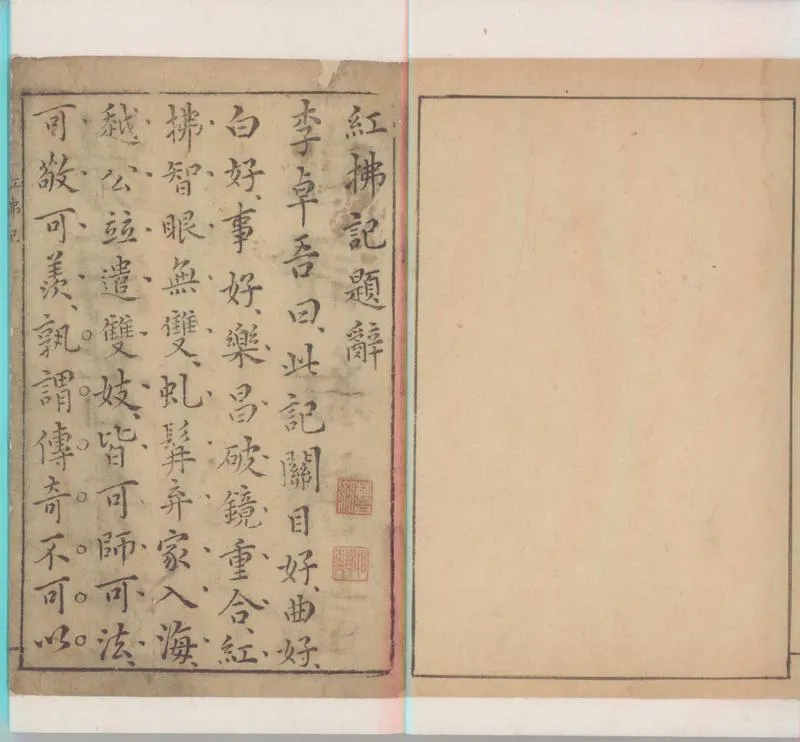 紅拂記題辭
李卓吾曰、此記關目好、曲好、
白好、事好、樂昌破鏡重合、紅
拂智眼無雙、虬髯弃家入海、
越公竝遣雙妓、皆可師可法、
可敬可羨、孰謂傳奇不可以
紅拂記